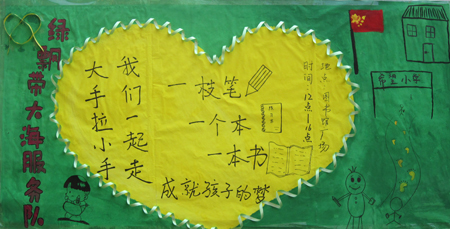 绿朝带大海服务队
大手拉小手
我们一起走
一枝笔
一个本
一本书
成就孩子的梦
地点：图书馆广场
时间：12点—16点
希望小学